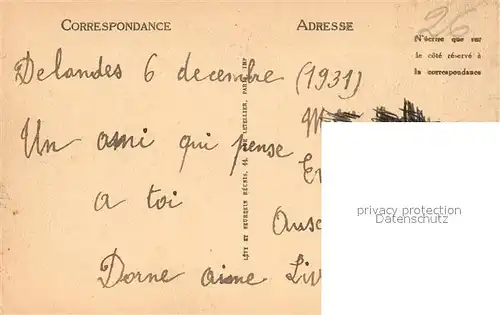 CORRESPONDANCE
ADRESSE
26
N'écrire que sur
le côté réservé à
la correspondance
Delandes 6 decembre (1931)
Un ami qui pense
a toi
Dorne aime Liv
LÉVY ET NEURDEIN RÉUNIS, 44, RUE LETELLIER, PARIS IMP
M
En
Ause
privacy protection
Datenschutz